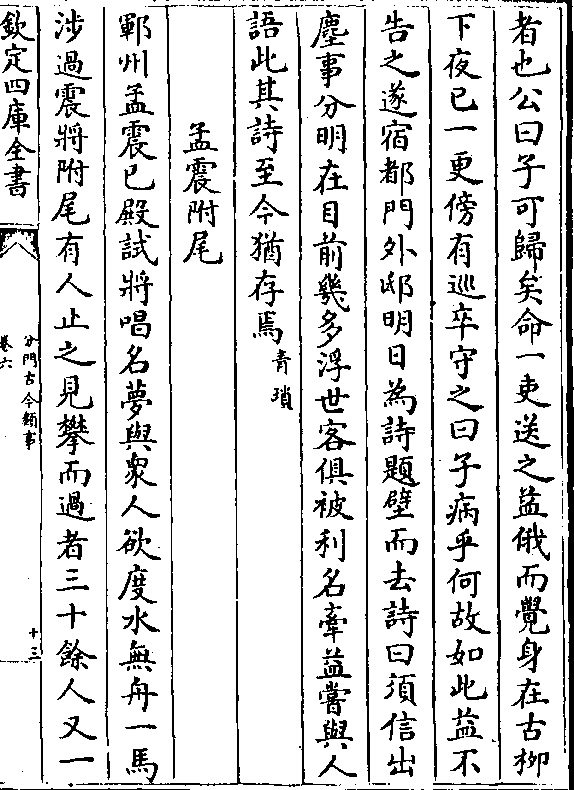 者也公曰子可歸矣命一吏送之益俄而覺身在古柳
下夜已一更傍有巡卒守之曰子病乎何故如此益不
告之遂宿都門外邸明日為詩題壁而去詩曰須信出
塵事分明在目前幾多浮世客俱被利名牽益嘗與人
語此其詩至今猶存焉青瑣
孟震附尾
鄆州孟震已殿試將唱名夢與衆人欲度水無舟一馬
涉過震將附尾有人止之見攀而過者三十餘人又一
欽定四庫全書
分門古今類事
卷六
十三